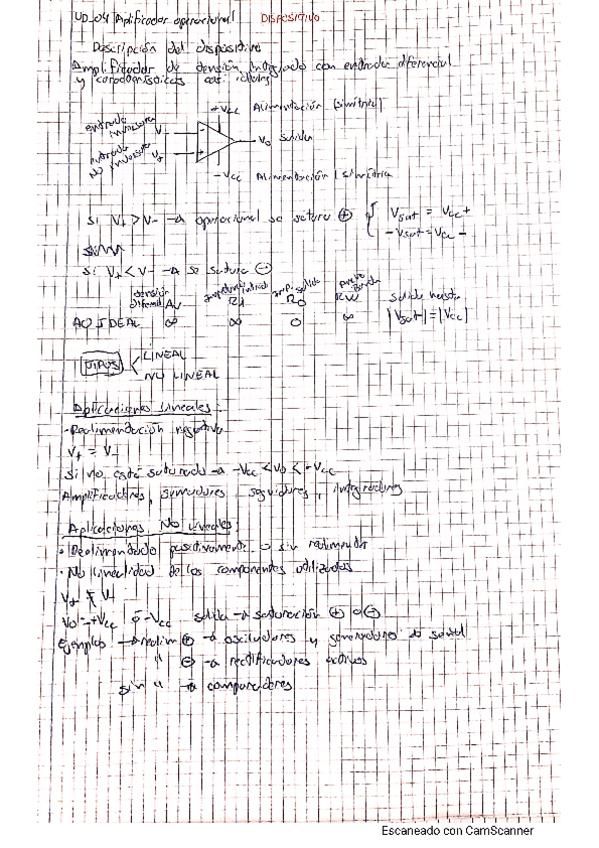 UD_04 Aplificador operacional DISPOSITIVO
- Descripción del dispositivo
Amplificador de tensión integrado con entrada diferencial
y características casi ideales
+Vcc Alimentación (simétrica)
entrada inversora V-
Vo salida
entrada NO inversora V+
-Vcc Alimentación (simétrica
si V+ > V- → operacional se satura ⊕ { Vsat = Vcc+
-Vsat = Vcc -
si V+ < V- → se satura ⊖
tensión diferencial Av impedancia entrada Ri imp. salida Ro BW salida
AO IDEAL ∞ ∞ 0 ∞ |Vsat| = |Vcc|
TIPOS
LINEAL
NO LINEAL
Aplicaciones Lineales:
- Realimentación negativa
V+ = V-
Si no está saturado → -Vcc < Vo < +Vcc
Amplificadores, sumadores, seguidores, integradores
Aplicaciones No Lineales:
· Realimentado positivamente o sin realimentar
· No linealidad de los componentes utilizados
V+ ≠ V-
Vo = +Vcc ó -Vcc salida → saturación ⊕ o ⊖
Ejemplos → realim ⊕ → osciladores y generadores de señal
" ⊖ → rectificadores activos
sin " → comparadores
Escaneado con CamScanner